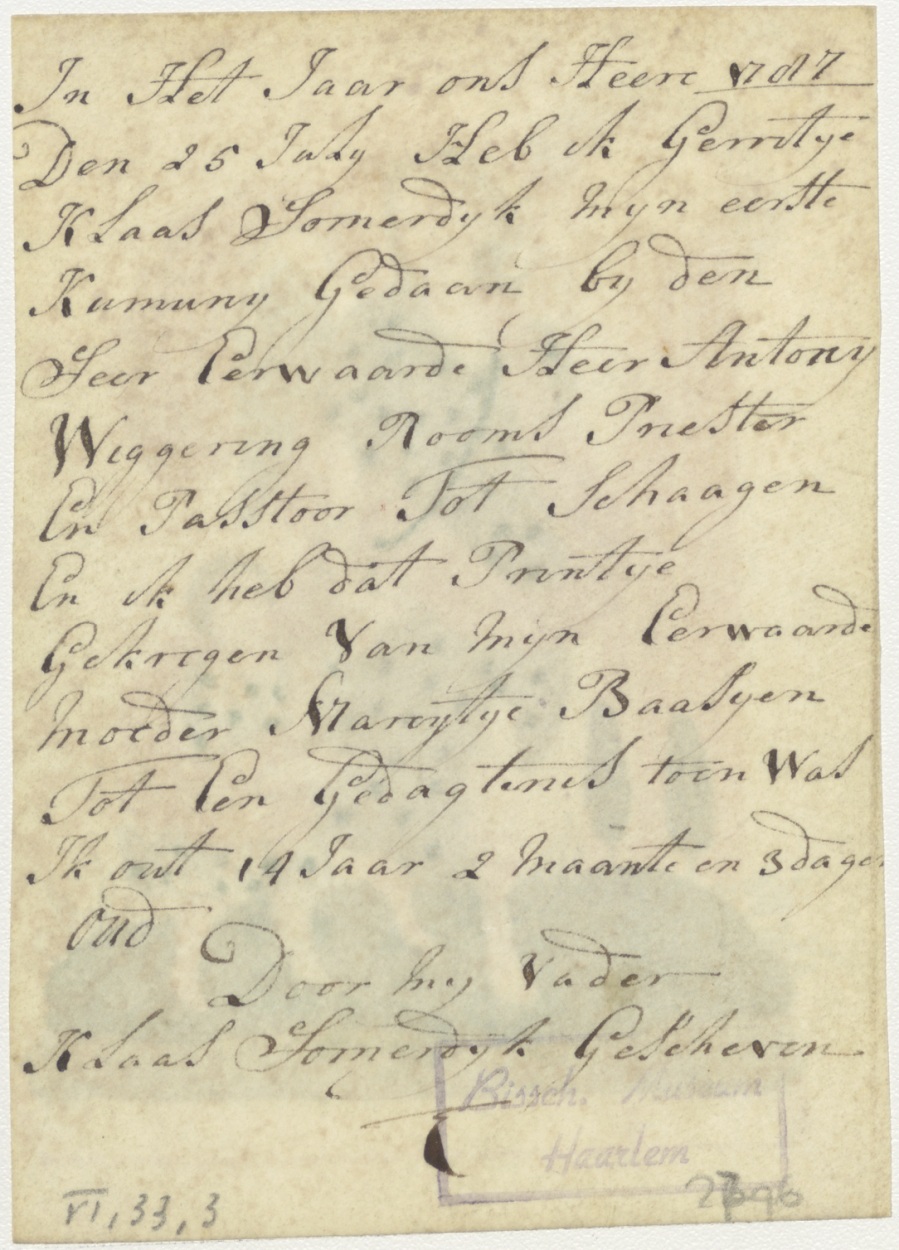 In Het Jaar ons Heere 1787
Den 25 July Heb ik Gerritje
Klaas Somerdyk Myn eerste
Kumuny Gedaan by den
Seer Eerwaarde Heer Antony
Wiggering Rooms Priester
En Passtoor Tot Schaagen
En ik heb dat Printye
Gekregen Van Myn Eerwaarde
Moeder Mareytye Baasyen
Tot Een Gedagtenis toen Was
Ik out 14 Jaar 2 Maante en 3 dagen
oud
Door My Vader
Klaas Somerdyk Gescheven
Bissch. Museum
Haarlem
VI, 33, 3